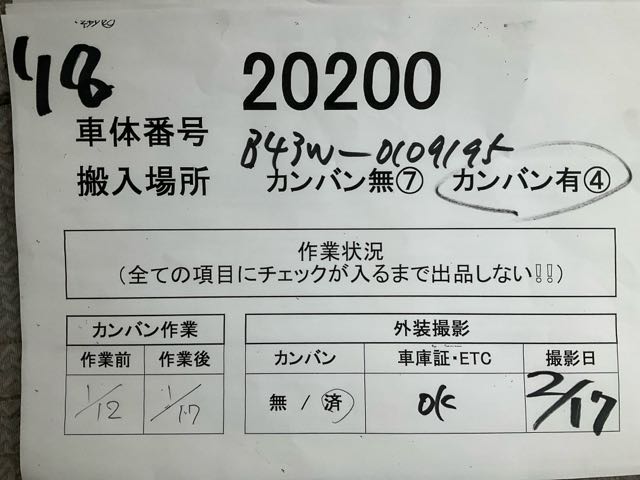 '18
20200
車体番号 B43W-0109195
搬入場所 カンバン無⑦ カンバン有④
作業状況
(全ての項目にチェックが入るまで出品しない!!)
カンバン作業 外装撮影
作業前 作業後 カンバン 車庫証・ETC 撮影日
1/12 1/17 無 / 済 OK 2/17